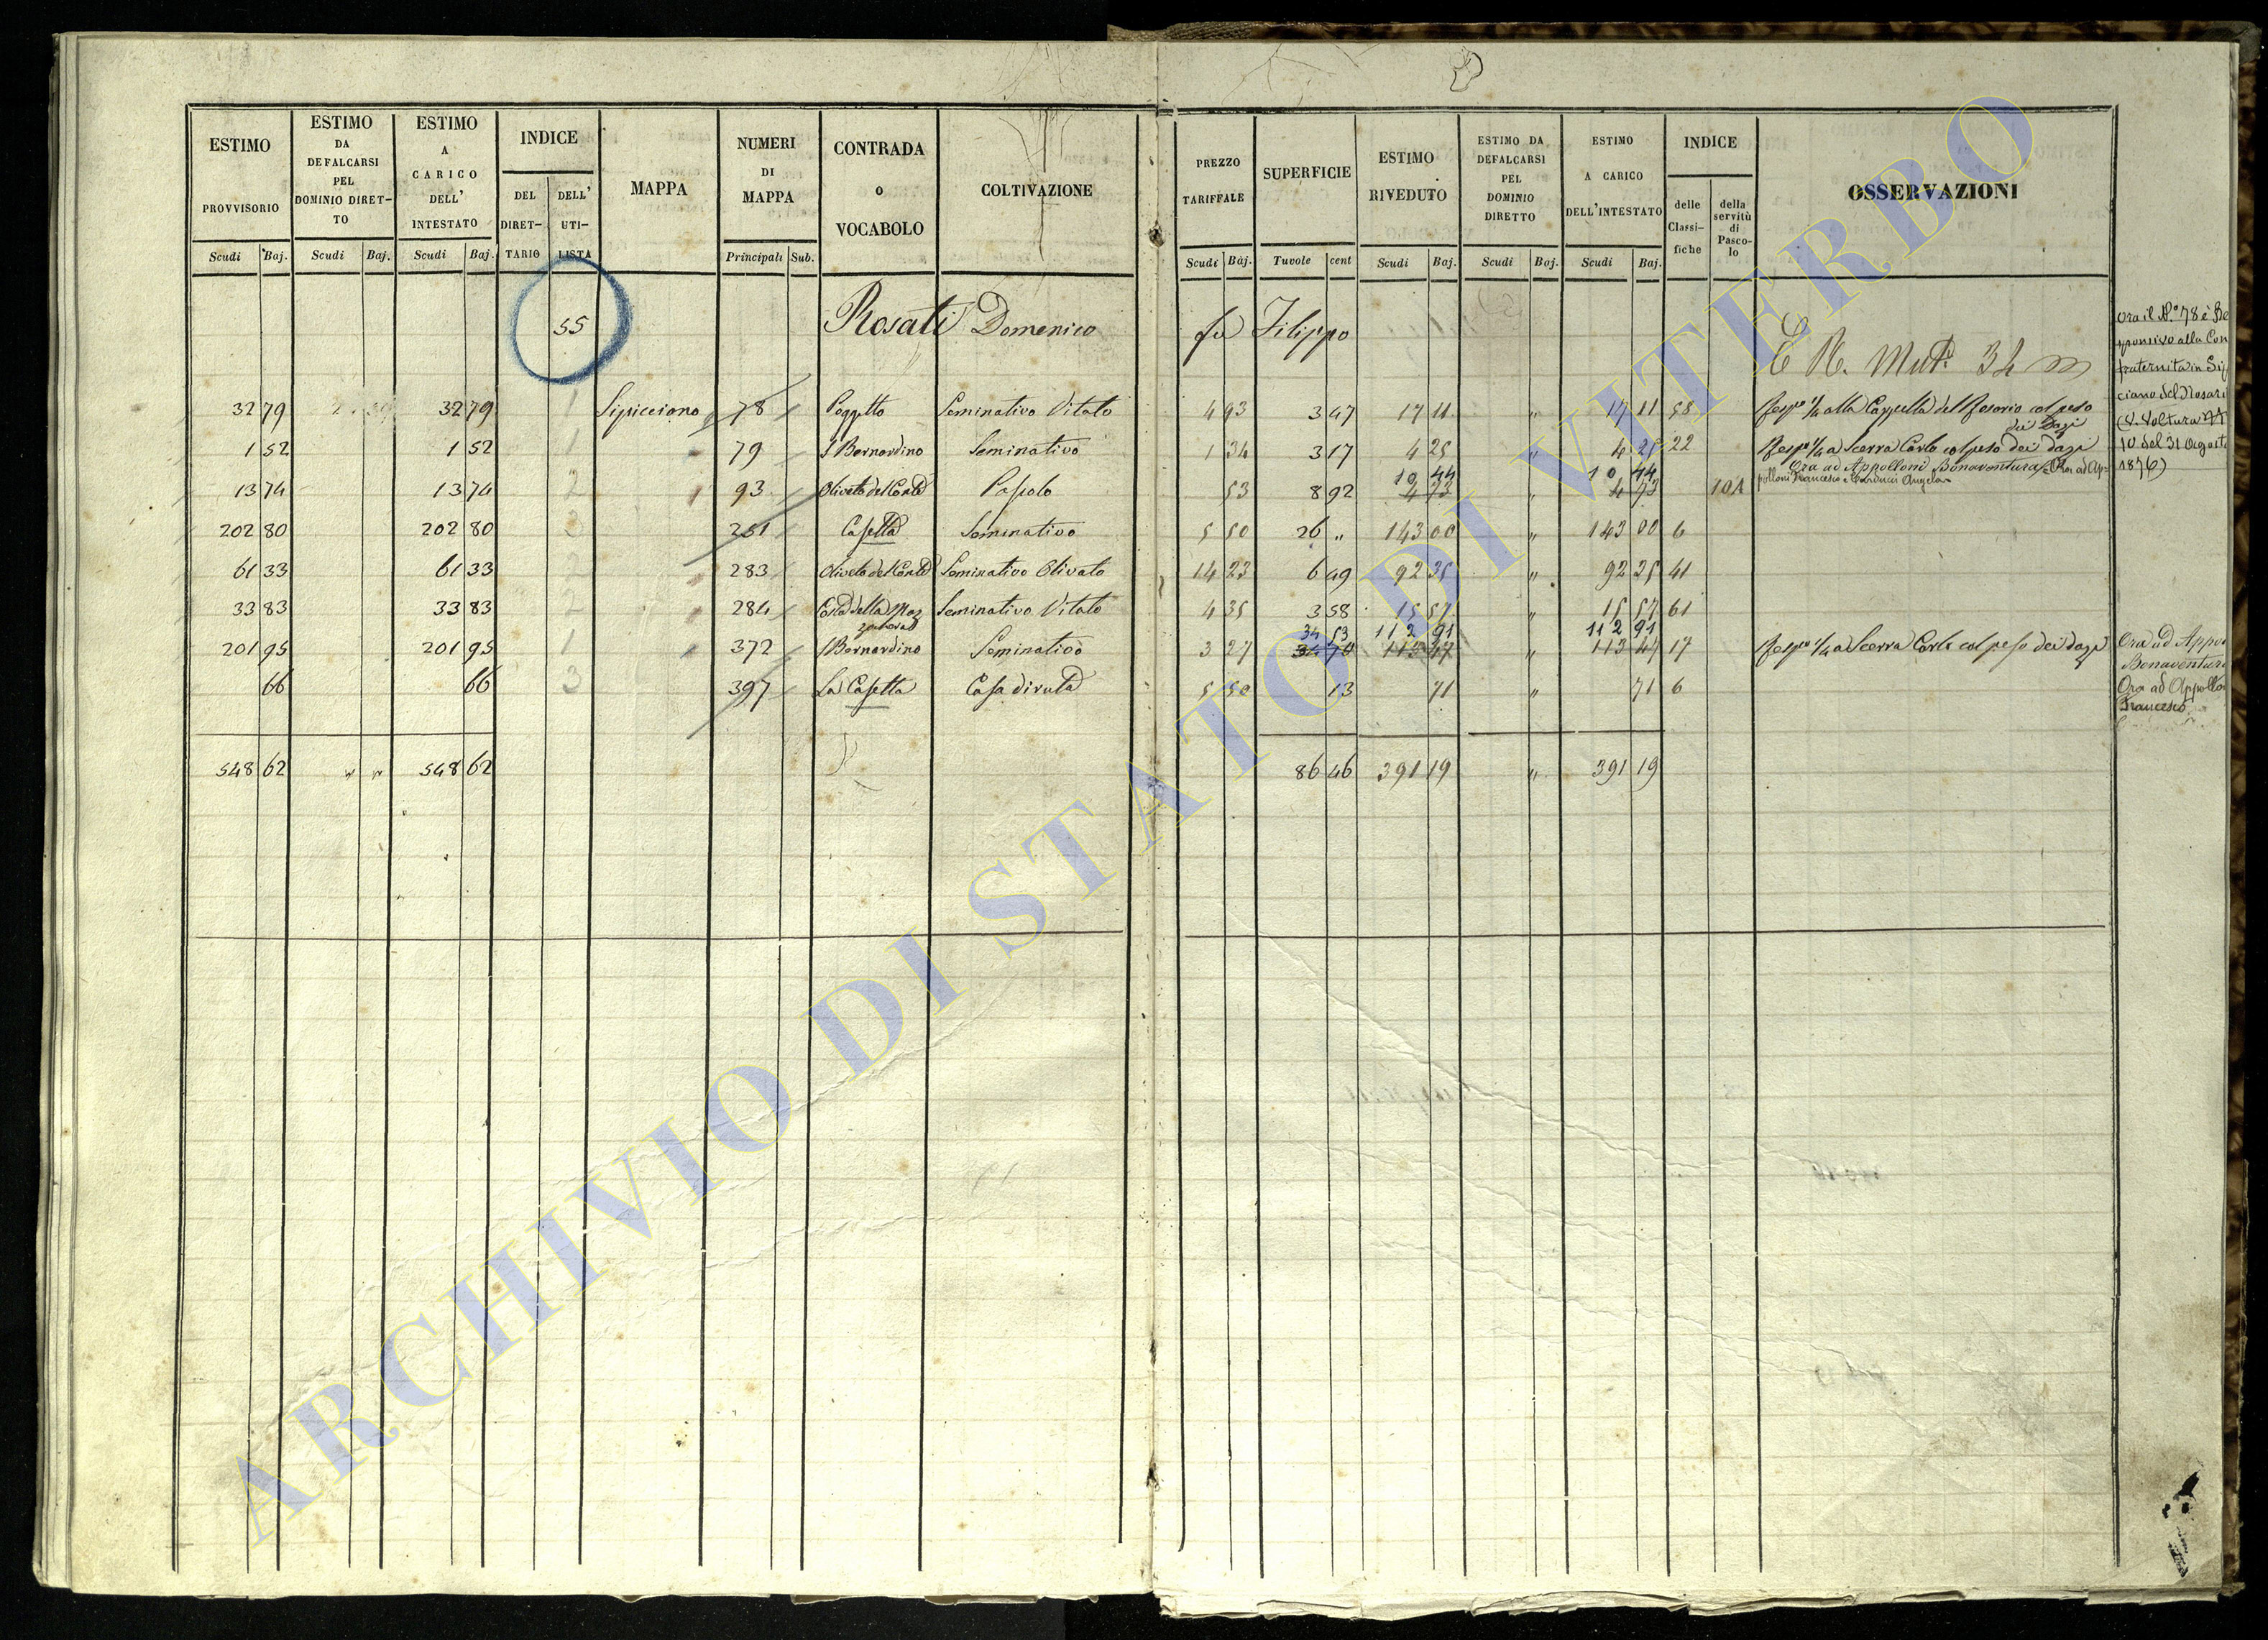 ESTIMO PROVVISORIO Scudi Baj.
ESTIMO DA DEFALCARSI PEL DOMINIO DIRET- TO Scudi Baj.
ESTIMO A CARICO DELL' INTESTATO Scudi Baj.
INDICE DEL DIRET- TARIO DELL' UTI- LISTA
MAPPA
NUMERI DI MAPPA Principali Sub.
CONTRADA o VOCABOLO
COLTIVAZIONE
PREZZO TARIFFALE Scudi Baj.
SUPERFICIE Tavole cent
ESTIMO RIVEDUTO Scudi Baj.
ESTIMO DA DEFALCARSI PEL DOMINIO DIRETTO Scudi Baj.
ESTIMO A CARICO DELL'INTESTATO Scudi Baj.
INDICE delle Classi- fiche della servitù di Pasco- lo
OSSERVAZIONI
55 Rosati Domenico fu Filippo
32 79 32 79 1 Sipicciano 78 Poggetto Seminativo Vitato 4 93 3 47 17 11 " 17 11 58 Resp° 1/4 alla Cappella del Rosario col peso
dei Dazi
1 52 1 52 1 79 S Bernardino Seminativo 1 34 3 17 4 25 " 4 25 22 Resp° 1/4 a Scerra Carlo col peso dei dazi
Ora ad Appolloni Bonaventura Ora ad Ap-
polloni Francesco e Angela
10 44 10 44
13 74 13 74 2 93 Oliveto del Conte Pascolo 53 8 92 4 73 " 4 73 104
202 80 202 80 3 251 Casetta Seminativo 5 50 26 " 143 00 " 143 00 6
61 33 61 33 2 283 Oliveto del Conte Seminativo Olivato 14 23 6 49 92 35 " 92 35 41
33 83 33 83 2 284 Costa della Seminativo Vitato 4 35 3 58 15 57 " 15 57 61
34 53 112 91 112 91
201 95 201 95 1 372 S Bernardino Seminativo 3 27 34 70 113 47 " 113 47 17 Resp° 1/4 a Scerra Carlo col peso dei dazi
66 66 3 397 La Casetta Casa diruta 5 50 13 71 " 71 6
548 62 " " 548 62 86 46 391 19 " 391 19
Ora il N.° 78 è Re
sponsivo alla Con
fraternita in Sip
ciano del Rosari
(V. Voltura N
10 del 31 Agosto
1876)
Ora ad Appo
Bonaventura
Ora ad Appollo
Francesco
ARCHIVIO DI STATO DI VITERBO